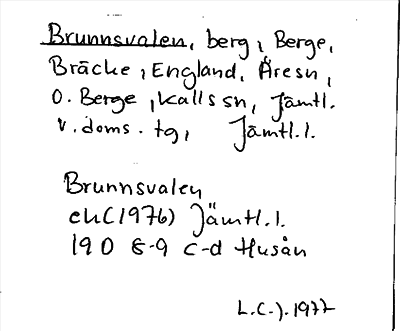 Brunnsvalen, berg, Berge,
Bräcke, England, Åresn,
O. Berge, Kallssn, Jämtl.
v. doms. tg, Jämtl.l.
Brunnsvalen
ek (1976) Jämtl.l.
19D 8-9 c-d Husån
L.C-j. 1977